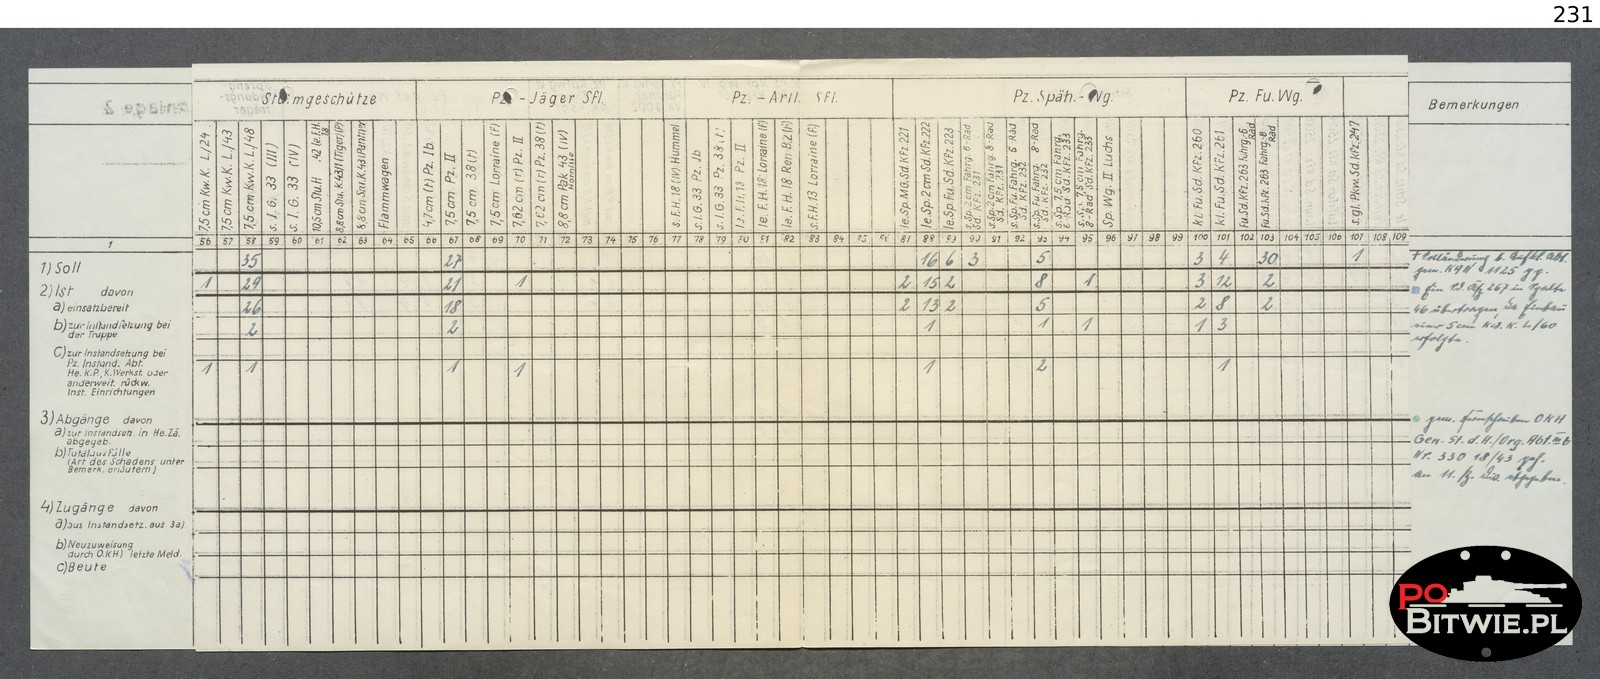 231
Anlage 2
Sturmgeschütze Pz. - Jäger Sfl. Pz. - Artl. Sfl. Pz. Späh. - Wg. Pz. Fu. Wg. Bemerkungen
7,5 cm Kw. K. L/24
7,5 cm Kw. K. L/43
7,5 cm Kw. K. L/48
s. I. G. 33 (III)
s. I. G. 33 (IV)
10,5cm Stu.H. 42 le.F.H. 18
8,8cm Stu. K.43 (Tiger)(P)
8,8cm Stu.K.43 (Panther)
Flammwagen
4,7 cm (t) Pz. Ib.
7,5 cm Pz. II
7,5 cm 38 (t)
7,5 cm Lorraine (F)
7,62 cm (r) Pz. II
7,62 cm (r) Pz. 38 (t)
8,8 cm Pak 43 (IV) Hornisse
s. F.H. 18 (IV) Hummel
s. I.G. 33 Pz. Jb
s. I.G. 33 Pz. 38 (t)
le. F.H. 18 Pz. II
le. F.H. 18 Lorraine (F)
le. F.H. 18 Ren. B.2 (F)
s. F.H. 13 Lorraine (F)
le. Sp. MG. Sd. KFz. 221
le. Sp. 2 cm Sd. KFz. 222
le. Sp. Fu. Sd. KFz. 223
s. Sp. 2 cm Fahrg. 6-Rad Sd. KFz. 231
s. Sp. 2 cm Fahrg. 8-Rad Sd. KFz. 231
s. Sp. Fu. Fahrg. 6-Rad Sd. KFz. 232
s. Sp. Fu. Fahrg. 8-Rad Sd. KFz. 232
s. Sp. 7,5 cm Fahrg. 6-Rad Sd. KFz. 233
s. Sp. 7,5 cm Fahrg. 8-Rad Sd. KFz. 233
Sp. Wg. II Luchs
kl. Fu. Sd. KFz. 260
kl. Fu. Sd. KFz. 261
Fu Sd. KFz. 263 Fahrg. 6 Rad
Fu. Sd. KFz. 263 Fahrg. 8 Rad
s. gl. Pkw. Sd. KFz. 247
1 56 57 58 59 60 61 62 63 64 65 66 67 68 69 70 71 72 73 74 75 76 77 78 79 80 81 82 83 84 85 86 87 88 89 90 91 92 93 94 95 96 97 98 99 100 101 102 103 104 105 106 107 108 109
1) Soll 35 27 16 6 3 5 3 4 30 1
2) Ist davon 1 29 21 1 2 15 2 8 1 3 12 2
a) einsatzbereit 26 18 2 13 2 5 2 8 2
b) zur Instandsetzung bei 2 2 1 1 1 1 3
der Truppe
c) zur Instandsetzung bei
Pz. Instand. Abt.
He. K.P., K.Werkst. oder 1 1 1 1 1 2 1
anderweit. rückw.
Inst. Einrichtungen
3) Abgänge davon
a) zur Instandset. in He. Zä.
abgegeb.
b) Totalausfälle
(Art des Schadens unter
Bemerk. erläutern)
4) Zugänge davon
a) aus Instandsetz. aus 3a)
b) Neuzuweisung
durch O.KH) letzte Meld.
c) Beute
gem. 1125
267 in Spalte
46 übertragen, da Einbau
5 cm K. L/60
erfolgte.
gem. Fernschreiben OKH
Gen. St. d. H./Org. Abt. III b
Nr. 330 18/43
an 11. abgegeben.
PO
BITWIE.PL